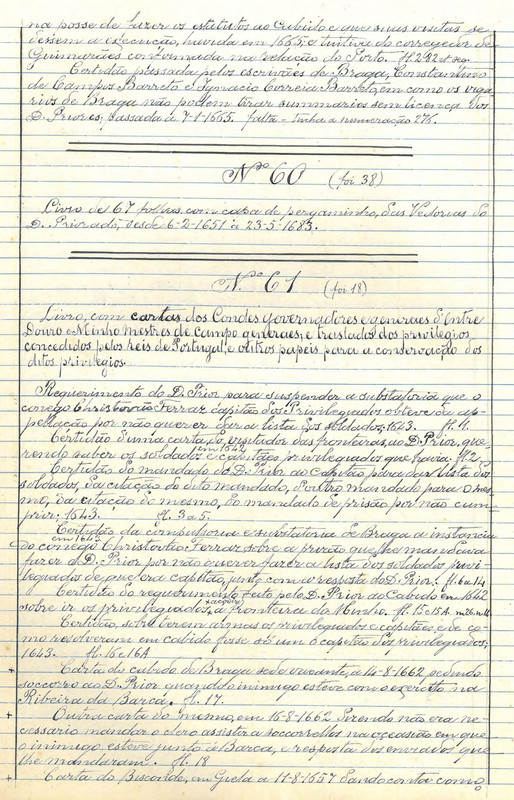 na posse de fazer os estatutos ao Cabido e que suas visitas se
dessem a execução, havida em 1665; e tuitiva do corregedor de
Guimarães confirmada na relação do Porto. fl. 292 et seq.
Certidão passada pelos escrivães de Braga, Constantino
de Campos Barreto e Ignacio Correia Barreto, em como os viga-
rios de Braga não podem tirar summarios sem licença dos
D. Priores; passada a 7-1-1665. falta - tinha a numeração 276.
Nº 60 (foi 38)
Livro de 67 folhas com capa de pergaminho, das Vedorias do
D. Priorado, desde 6-2-1651 a 23-5-1683.
Nº 61 (foi 18)
Livro, com cartas dos Condes governadores e generaes d'Entre
Douro e Minho mestres de campo generaes, e traslados dos privilegios
concedidos pelos reis de Portugal, e outros papeis para a conservação dos
ditos privilegios.
Requerimento do D. Prior para suspender a substatoria que o
conego Christovão Ferraz capitão dos Privilegiados obteve da ap-
pellação por não querer dar a lista dos soldados; 1643. fl. 1.
Certidão d'uma carta, do visitador das fronteiras, ao D. Prior, que-
rendo saber os soldados e capitães privilegiados que havia em 1642. fl. 2.
Certidão do mandado do D. Prior ao Capitão para dar lista dos
soldados, da citação do dito mandado, d'outro mandado para o mes-
mo, da citação do mesmo, do mandado de prisão por não cum-
prir; 1643. fl. 3 a 5.
Certidão da compulsoria e substatoria de Braga a instancia
do conego Christovão Ferraz em 1643 sobre a prisão que lhe mandava
fazer o D. Prior por não querer fazer a lista dos soldados privi-
legiados de que era capitão, junto com a resposta do D. Prior. fl. 6 a 14
Certidão do requerimento feito pelo D. Prior ao Cabido em 1642
sobre ir os privilegiados, a fronteira do Minho. fl. 15 e 15A.
Certidão, sobre terem armas os privilegiados e capitão, e de co-
mo resolveram em cabido fosse só um o capitão dos privilegiados;
1643. fl. 16 e 16A
+ Carta do cabido de Braga sede vacante, a 14-8-1662 pedindo
soccorro ao D. Prior quando o inimigo esteve com o exercito na
Ribeira da Barca. fl. 17.
+ Outra carta do mesmo, em 15-8-1662 dizendo não era ne-
cessario mandar o clero assistir a soccorrel-os na occasião em que
o inimigo esteve junto á Barca, e resposta dos enviados que
lhe mandaram. fl. 18
+ Carta do Bisconde, em Giela a 11-8-1657 dando conta como